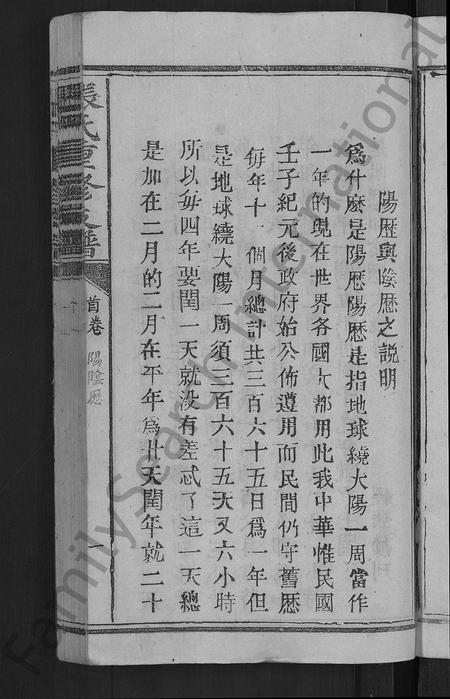 陽歷與陰歷之說明
為什麼是陽歷陽歷是指地球繞大陽一周當作
一年的現在世界各國大都用此我中華惟民國
壬子紀元後政府始公佈遵用而民間仍守舊歷
每年十 個月總計共三百六十五日為一年但
是地球繞大陽一周須三百六十五天又六小時
所以每四年要閏一天就沒有差忒了這一天總
是加在二月的二月在平年為廿 天閏年就二十
張氏重修支譜
首卷 陽陰歷
一
FamilySearch International